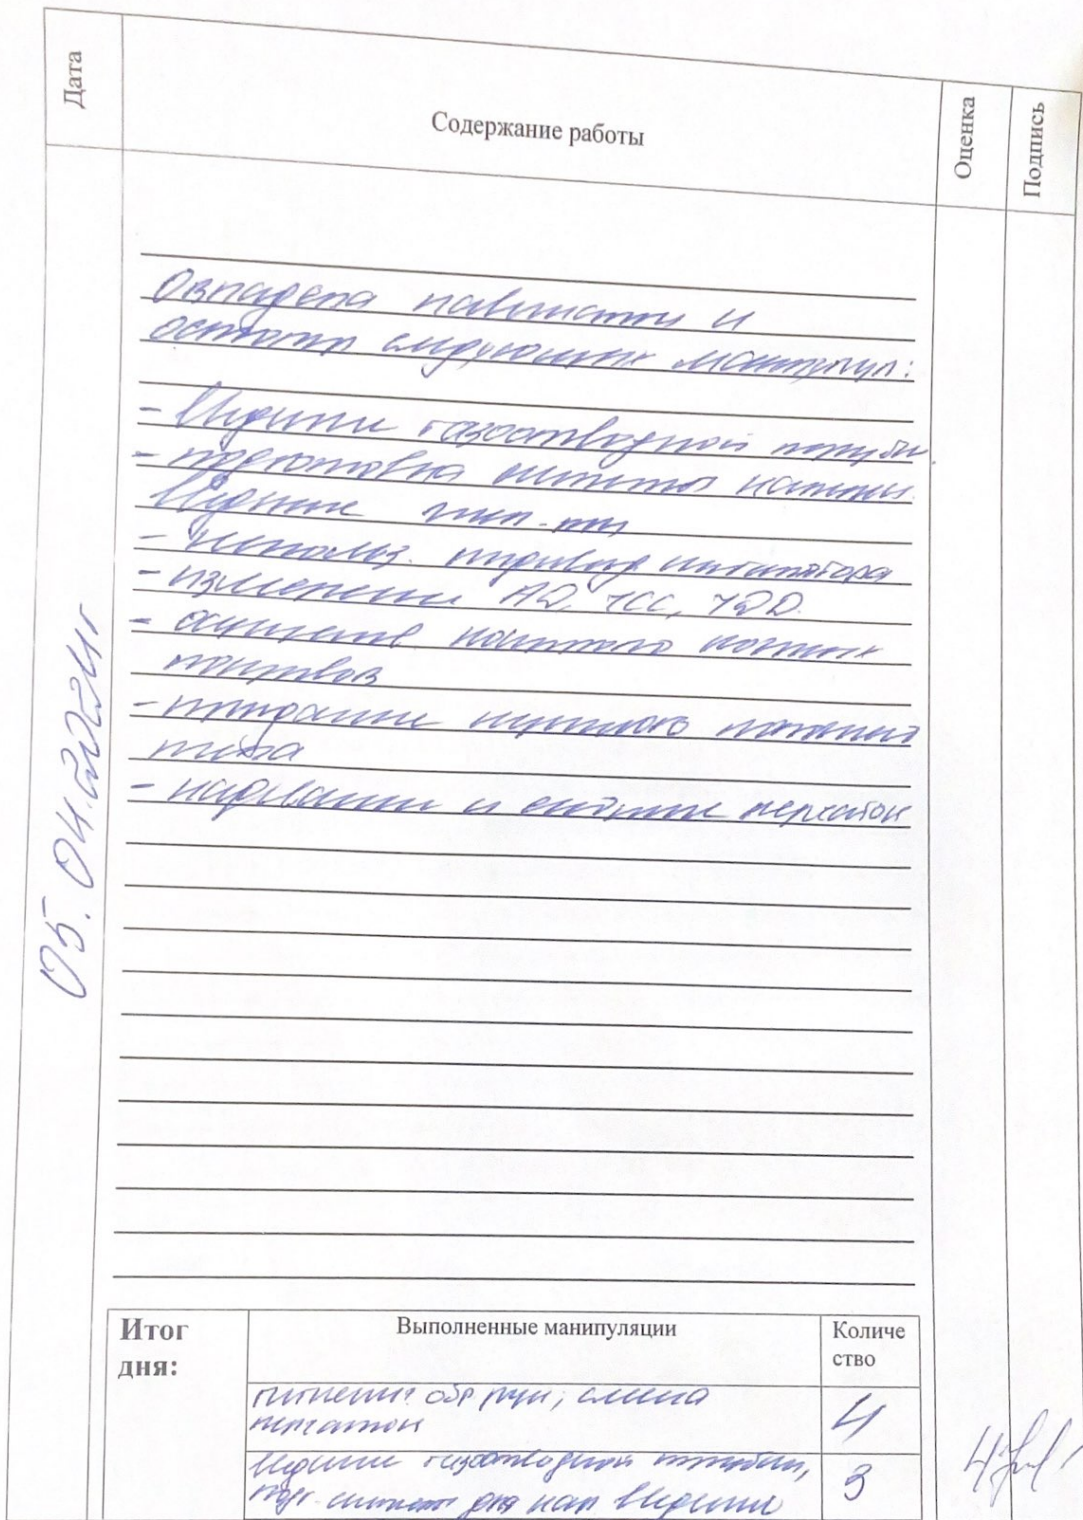 Дата
Содержание работы
Оценка
Подпись
05.04.2024г
Овладела навыками и
следующих манипул:
- Введение газоотводной трубки.
- подготовка системы капельн.
Введение
- использ. ингалятора
- измерение АД, ЧСС, ЧДД.
- осуществ. кожных
покровов
- придание нужного положения
тела
- надевание и снятие перчаток
Итог
дня:
Выполненные манипуляции
Количе
ство
гигиенич. обр рук, смена
перчаток
4
Введение газоотводной трубки,
подг. систем для кап введения
3
4